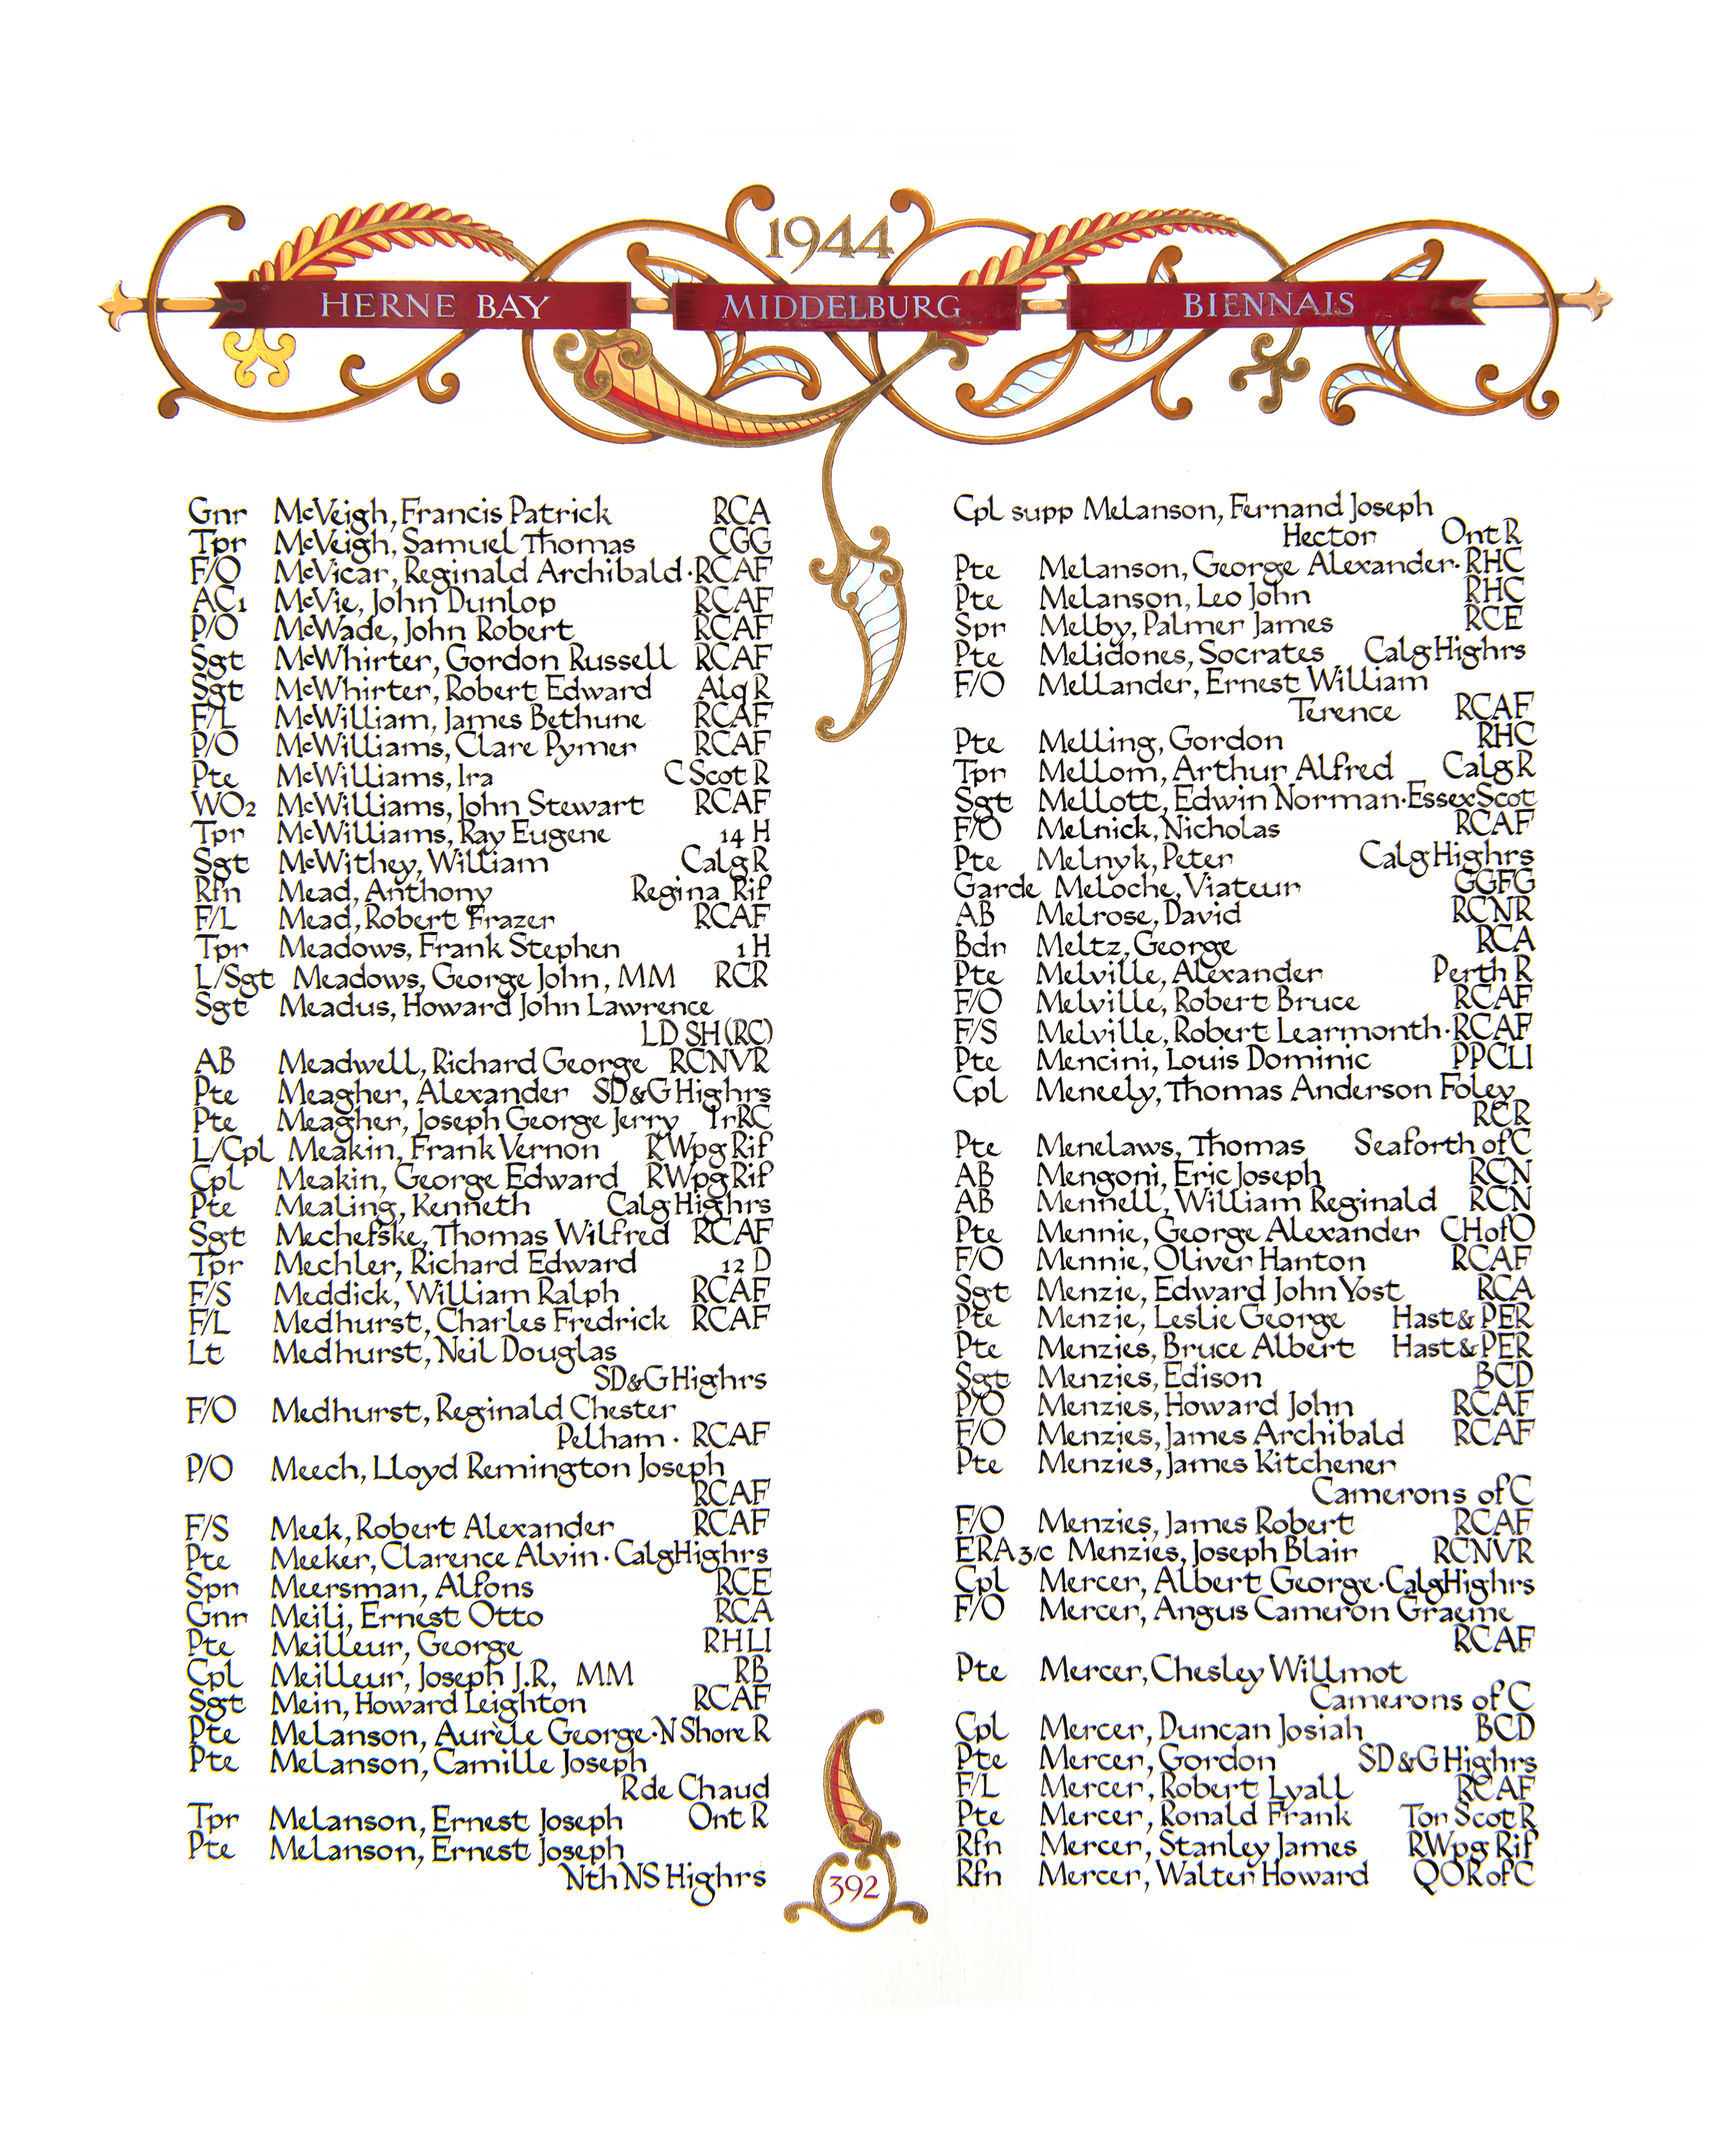 1944
HERNE BAY MIDDELBURG BIENNAIS
Gnr McVeigh, Francis Patrick RCA
Tpr McVeigh, Samuel Thomas CGG
F/O McVicar, Reginald Archibald·RCAF
AC1 McVie, John Dunlop RCAF
P/O McWade, John Robert RCAF
Sgt McWhirter, Gordon Russell RCAF
Sgt McWhirter, Robert Edward Alq R
F/L McWilliam, James Bethune RCAF
P/O McWilliams, Clare Pymer RCAF
Pte McWilliams, Ira C Scot R
WO2 McWilliams, John Stewart RCAF
Tpr McWilliams, Ray Eugene 14 H
Sgt McWithey, William Calg R
Rfn Mead, Anthony Regina Rif
F/L Mead, Robert Frazer RCAF
Tpr Meadows, Frank Stephen 1 H
L/Sgt Meadows, George John, MM RCR
Sgt Meadus, Howard John Lawrence
LD SH (RC)
AB Meadwell, Richard George RCNVR
Pte Meagher, Alexander SD&G Highrs
Pte Meagher, Joseph George Jerry IrRC
L/Cpl Meakin, Frank Vernon RWpg Rif
Cpl Meakin, George Edward RWpg Rif
Pte Mealing, Kenneth Calg Highrs
Sgt Mechefske, Thomas Wilfred RCAF
Tpr Mechler, Richard Edward 12 D
F/S Meddick, William Ralph RCAF
F/L Medhurst, Charles Fredrick RCAF
Lt Medhurst, Neil Douglas
SD&G Highrs
F/O Medhurst, Reginald Chester
Pelham · RCAF
P/O Meech, Lloyd Remington Joseph
RCAF
F/S Meek, Robert Alexander RCAF
Pte Meeker, Clarence Alvin · Calg Highrs
Spr Meersman, Alfons RCE
Gnr Meili, Ernest Otto RCA
Pte Meilleur, George RHLI
Cpl Meilleur, Joseph J.R, MM RB
Sgt Mein, Howard Leighton RCAF
Pte MeLanson, Aurèle George·N Shore R
Pte MeLanson, Camille Joseph
R de Chaud
Tpr MeLanson, Ernest Joseph Ont R
Pte MeLanson, Ernest Joseph
Nth NS Highrs
Cpl supp MeLanson, Fernand Joseph
Hector Ont R
Pte MeLanson, George Alexander·RHC
Pte MeLanson, Leo John RHC
Spr Melby, Palmer James RCE
Pte Melidones, Socrates Calg Highrs
F/O Mellander, Ernest William
Terence RCAF
Pte Melling, Gordon RHC
Tpr Mellom, Arthur Alfred Calg R
Sgt Mellott, Edwin Norman·Essex Scot
F/O Melnick, Nicholas RCAF
Pte Melnyk, Peter Calg Highrs
Garde Meloche, Viateur GGFG
AB Melrose, David RCNR
Bdr Meltz, George RCA
Pte Melville, Alexander Perth R
F/O Melville, Robert Bruce RCAF
F/S Melville, Robert Learmonth·RCAF
Pte Mencini, Louis Dominic PPCLI
Cpl Meneely, Thomas Anderson Foley
RCR
Pte Menelaws, Thomas Seaforth of C
AB Mengoni, Eric Joseph RCN
AB Mennell, William Reginald RCN
Pte Mennie, George Alexander CH of O
F/O Mennie, Oliver Hanton RCAF
Sgt Menzie, Edward John Yost RCA
Pte Menzie, Leslie George Hast & PER
Pte Menzies, Bruce Albert Hast & PER
Sgt Menzies, Edison BCD
P/O Menzies, Howard John RCAF
F/O Menzies, James Archibald RCAF
Pte Menzies, James Kitchener
Camerons of C
F/O Menzies, James Robert RCAF
ERA 3/c Menzies, Joseph Blair RCNVR
Cpl Mercer, Albert George·Calg Highrs
F/O Mercer, Angus Cameron Graeme
RCAF
Pte Mercer, Chesley Willmot
Camerons of C
Cpl Mercer, Duncan Josiah BCD
Pte Mercer, Gordon SD&G Highrs
F/L Mercer, Robert Lyall RCAF
Pte Mercer, Ronald Frank Tor Scot R
Rfn Mercer, Stanley James RWpg Rif
Rfn Mercer, Walter Howard QOR of C
392